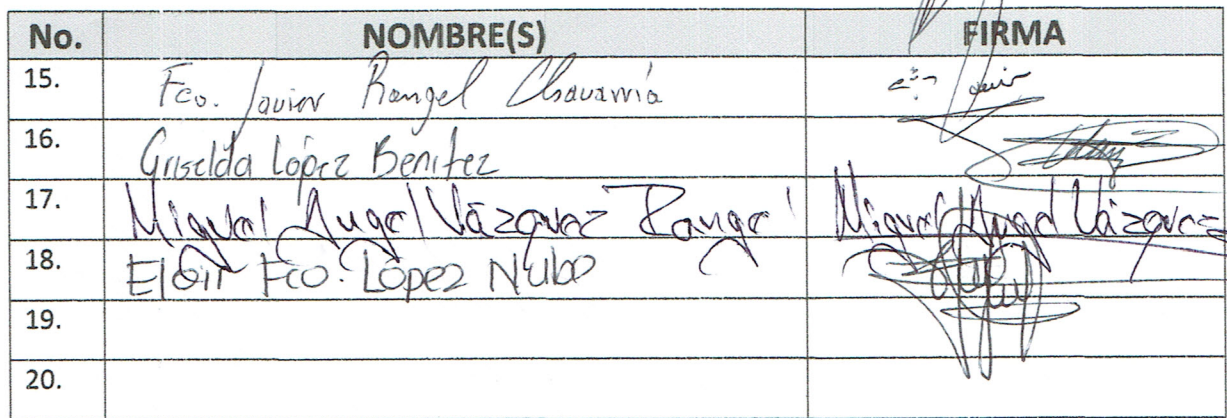 No. NOMBRE(S) FIRMA
15. Fco. Javier Rangel Chavarría
16. Griselda López Benitez
17. Miguel Angel Vázquez Rangel Miguel Angel Vázquez
18. Fco. López
19.
20.